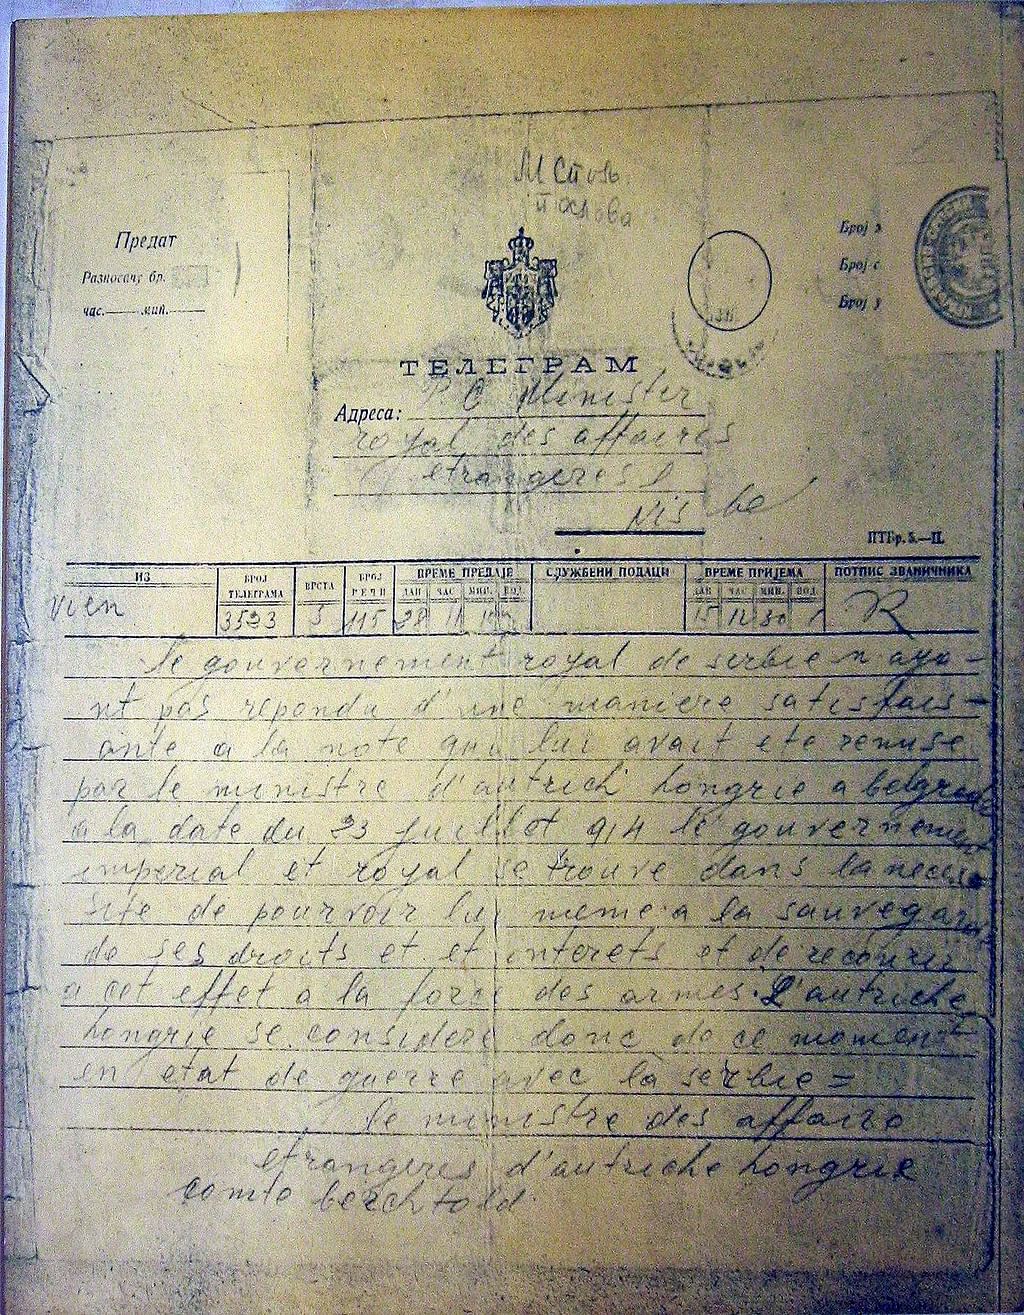 М Спољ
послова
Предат
Разносачу бр.
час. мин.
Број
Број
Број
ТЕЛЕГРАМ
Адреса: Minister
royal des affaires
etrangeres
Nis
ПТБр. 5.—II.
ИЗ БРОЈ ТЕЛЕГРАМА ВРСТА БРОЈ РЕЧИ ВРЕМЕ ПРЕДАЈЕ СЛУЖБЕНИ ПОДАЦИ ВРЕМЕ ПРИЈЕМА ПОТПИС ЗВАНИЧНИКА
ДАН ЧАС МИН. ПОД. ДАН ЧАС МИН. ПОД.
vien 3523 5 115 28 11 15 12 30 R
le gouvernement royal de serbie n aya-
nt pas repondu d'une maniere satisfais-
ante a la note qui lui avait ete remise
par le ministre d'autrich hongrie a belgrade
a la date du 23 juillet 914 le gouvernement
imperial et royal se trouve dans la neces-
site de pourvoir lui meme a la sauvegar
de ses droits et et interets et de recourir
a cet effet a la force des armes. L'autriche
hongrie se considere donc de ce moment
en etat de guerre avec la serbie =
le ministre des affaire
etrangeres d'autriche hongrie
comte berchtold